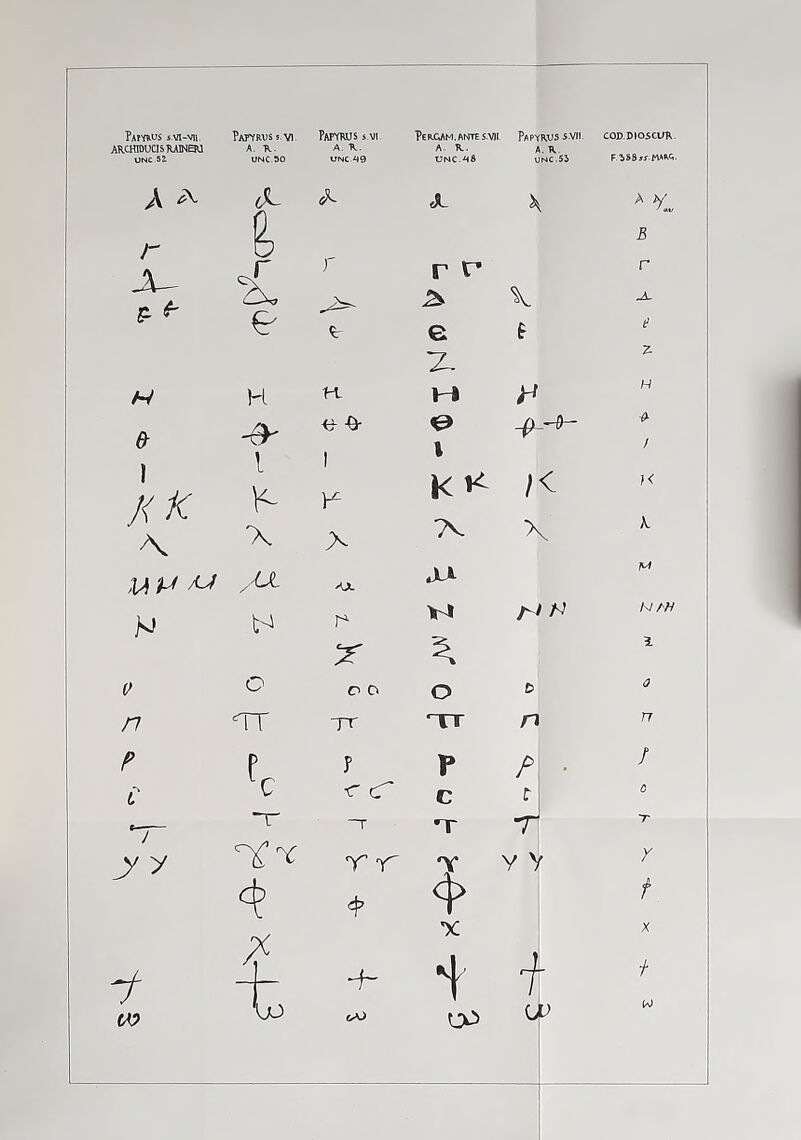 PAPYRUS S.VI-VII. PAPYRUS S. VI. PAPYRUS S. VI. PERGAM. ANTE S.VII. PAPYRUS S.VII. COD. DIOSCUR.
ARCHIDUCIS RAINERI A. R. A. R. A. R. A. R.
UNC. 52 UNC. 50 UNC. 49 UNC. 48 UNC. 53 F. 388 ss. MARG.
Α Α Α Α Α Α Α
Β Β
Γ Γ Γ Γ Γ Γ
Δ Δ Δ Δ Δ Δ
Ε Ε Ε Ε Ε Ε Ε
Ζ Ζ
Η Η Η Η Η Η
Θ Θ Θ Θ Θ Θ Θ Θ
Ι Ι Ι Ι Ι
Κ Κ Κ Κ Κ Κ Κ Κ
λ λ λ λ λ λ
μ μ μ μ μ μ Μ
Ν Ν Ν Ν Ν Ν Ν Ν
Ξ Ξ Ξ
Ο Ο Ο Ο Ο Ο Ο
Π Π Π Π Π Π
Ρ Ρ Ρ Ρ Ρ Ρ
C C C C C C C
Τ Τ Τ Τ Τ Τ
Υ Υ Υ Υ Υ Υ Υ Υ Υ Υ
Φ Φ Φ Φ
Χ Χ Χ
Ψ Ψ Ψ Ψ Ψ Ψ
ω ω ω ω ω ω